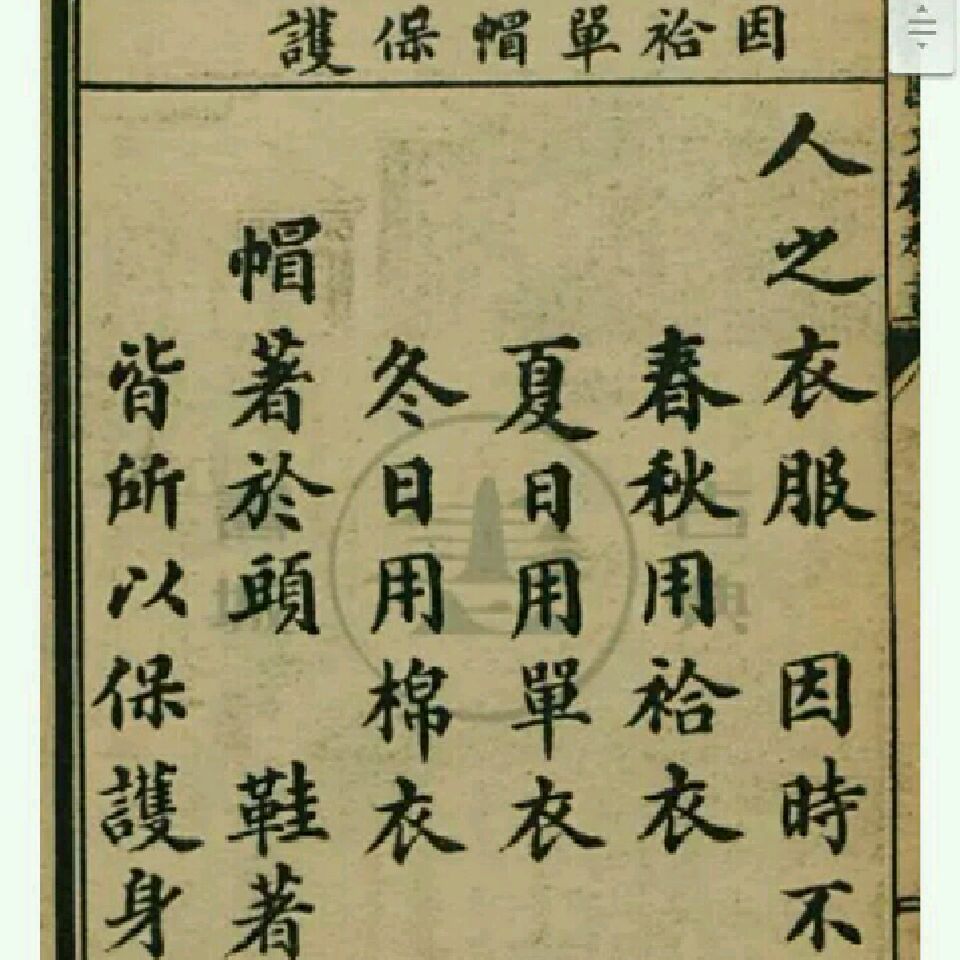 因袷單帽保護
人之衣服 因時不
春秋用袷衣
夏日用單衣
冬日用棉衣
帽著於頭 鞋著
皆所以保護身